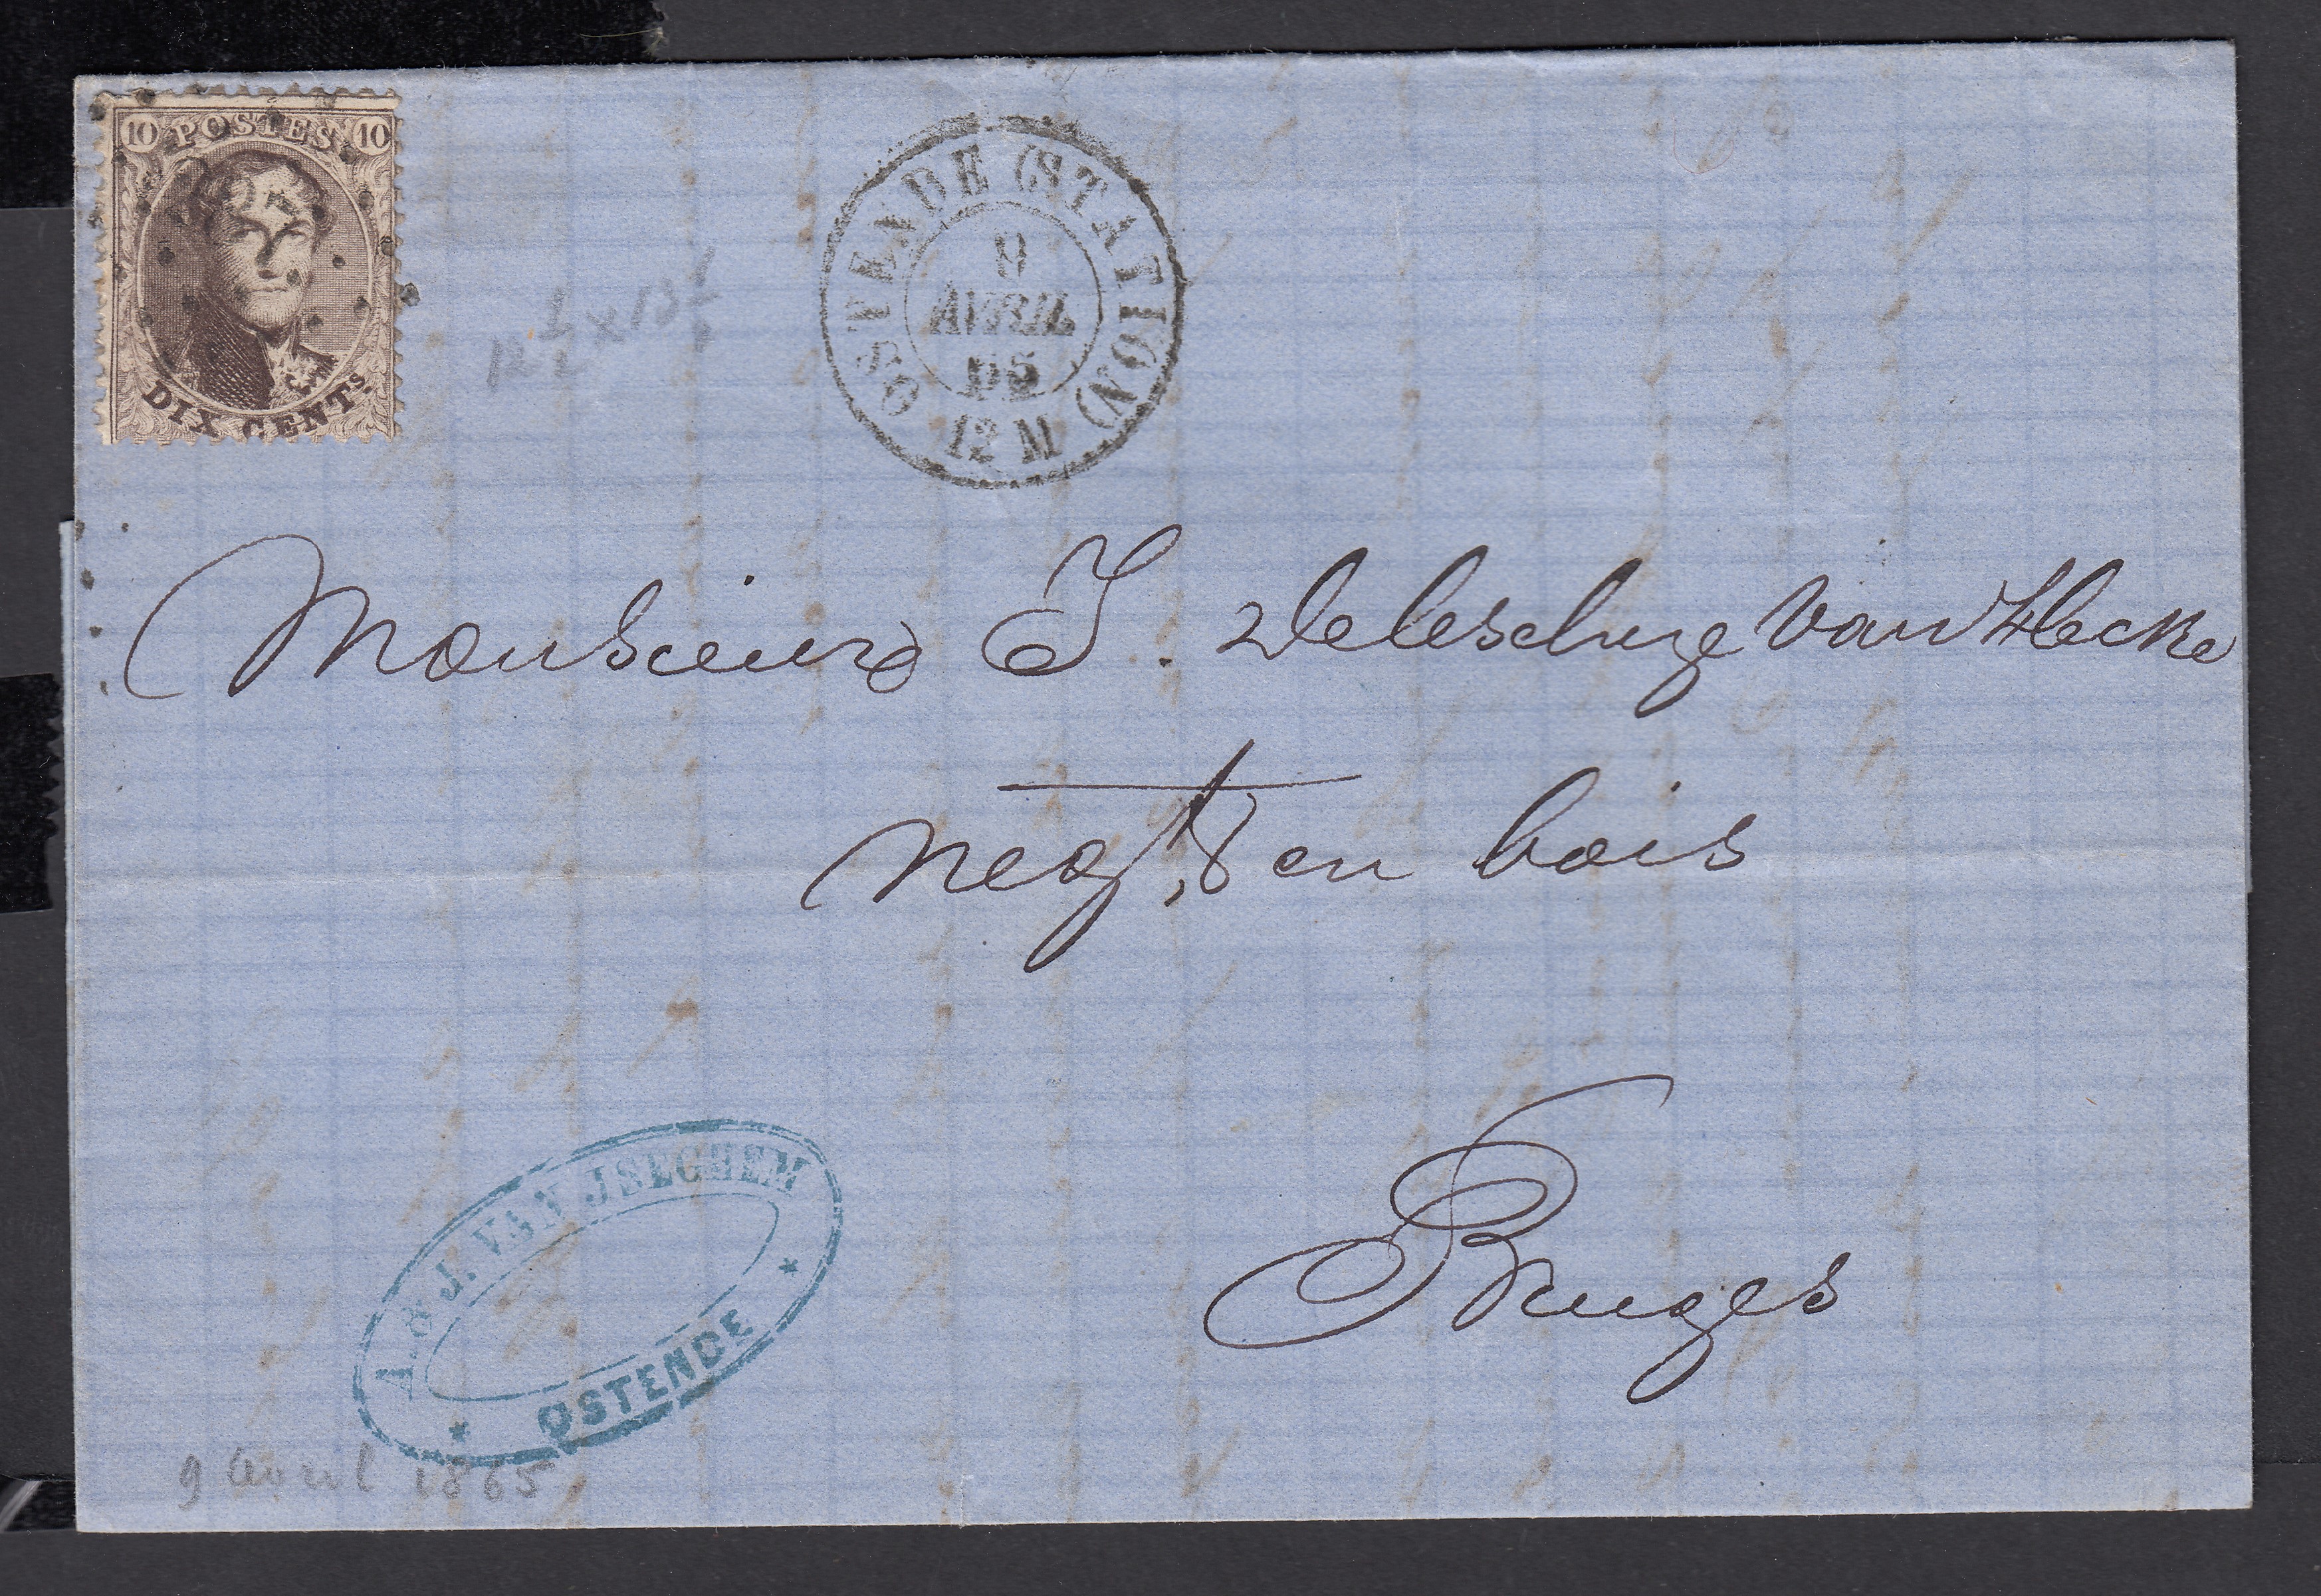 10 POSTES 10
DIX CENTS.
12 1/2 x 13 1/2
OSTENDE (STATION)
9
AVRIL
65
12 M
Monsieur J. Delescluze Van Hecke
negt en bois
Bruges
A. & J. VAN JSEGHEM
OSTENDE
9 avril 1865